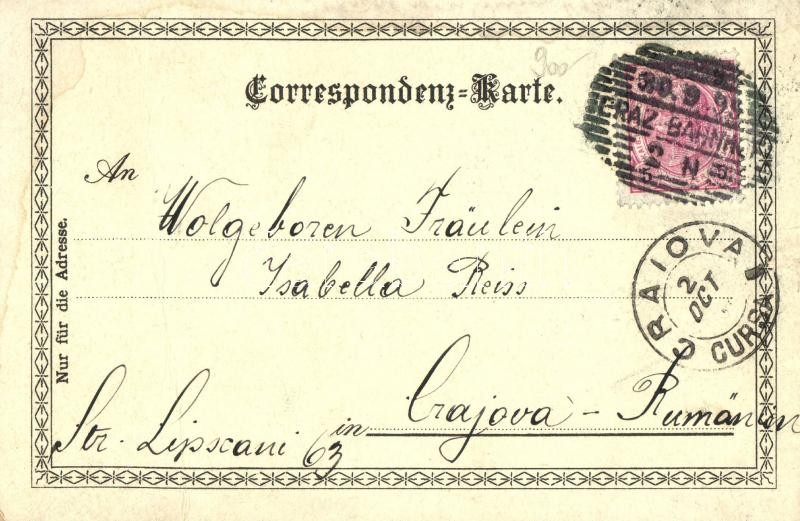 900
Correspondenz-Karte.
An
Wolgeboren Fräulein
Isabella Reiss
in Crajova - Rumänien
Str. Lipscani 63
Nur für die Adresse.
30.9.98
GRAZ BAHNHO
N
5 5
CRAIOVA
2
OCT
CURSA I